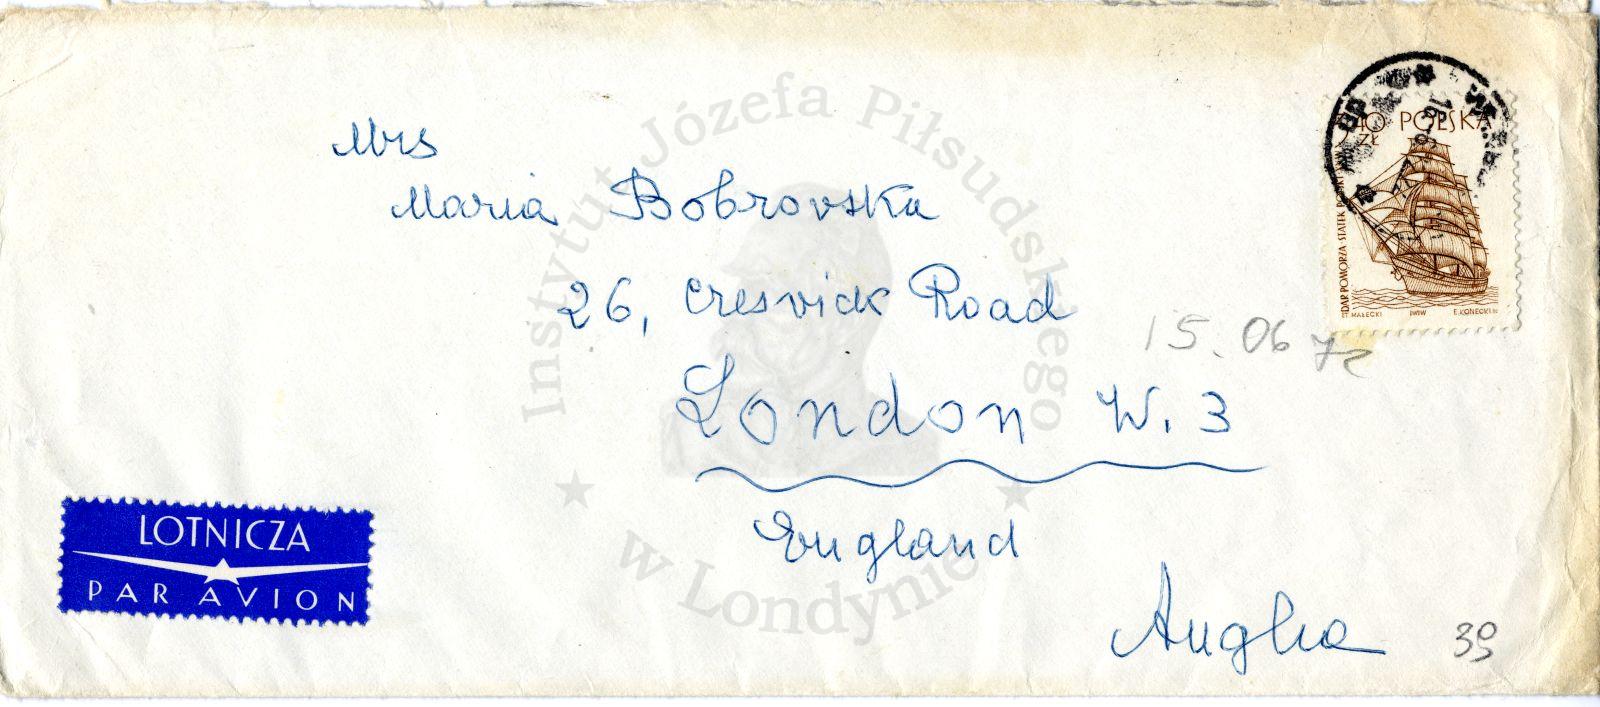 Mrs
Maria Bobrovska
26, Cresvick Road
London W. 3
England
Anglia
15. 06 72
39
10 ZŁ POLSKA
DAR POMORZA STATEK
ST. MAŁECKI PWPW E. KONECKI
LOTNICZA
PAR AVION
Instytut Józefa Piłsudskiego
w Londynie